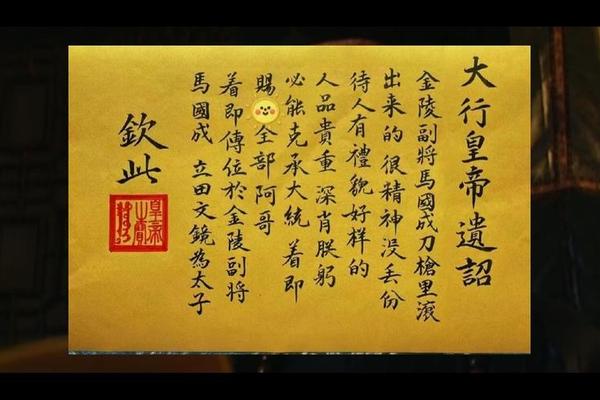 大行皇帝遺詔
金陵副將馬國成刀槍里滾
出来的很精神没丢份
待人有禮貌好样的
人品貴重深肖朕躬
必能克承大統 着即
賜全部阿哥
着即傳位於金陵副将
馬國成 立田文鏡為太子
欽此
皇帝之寶